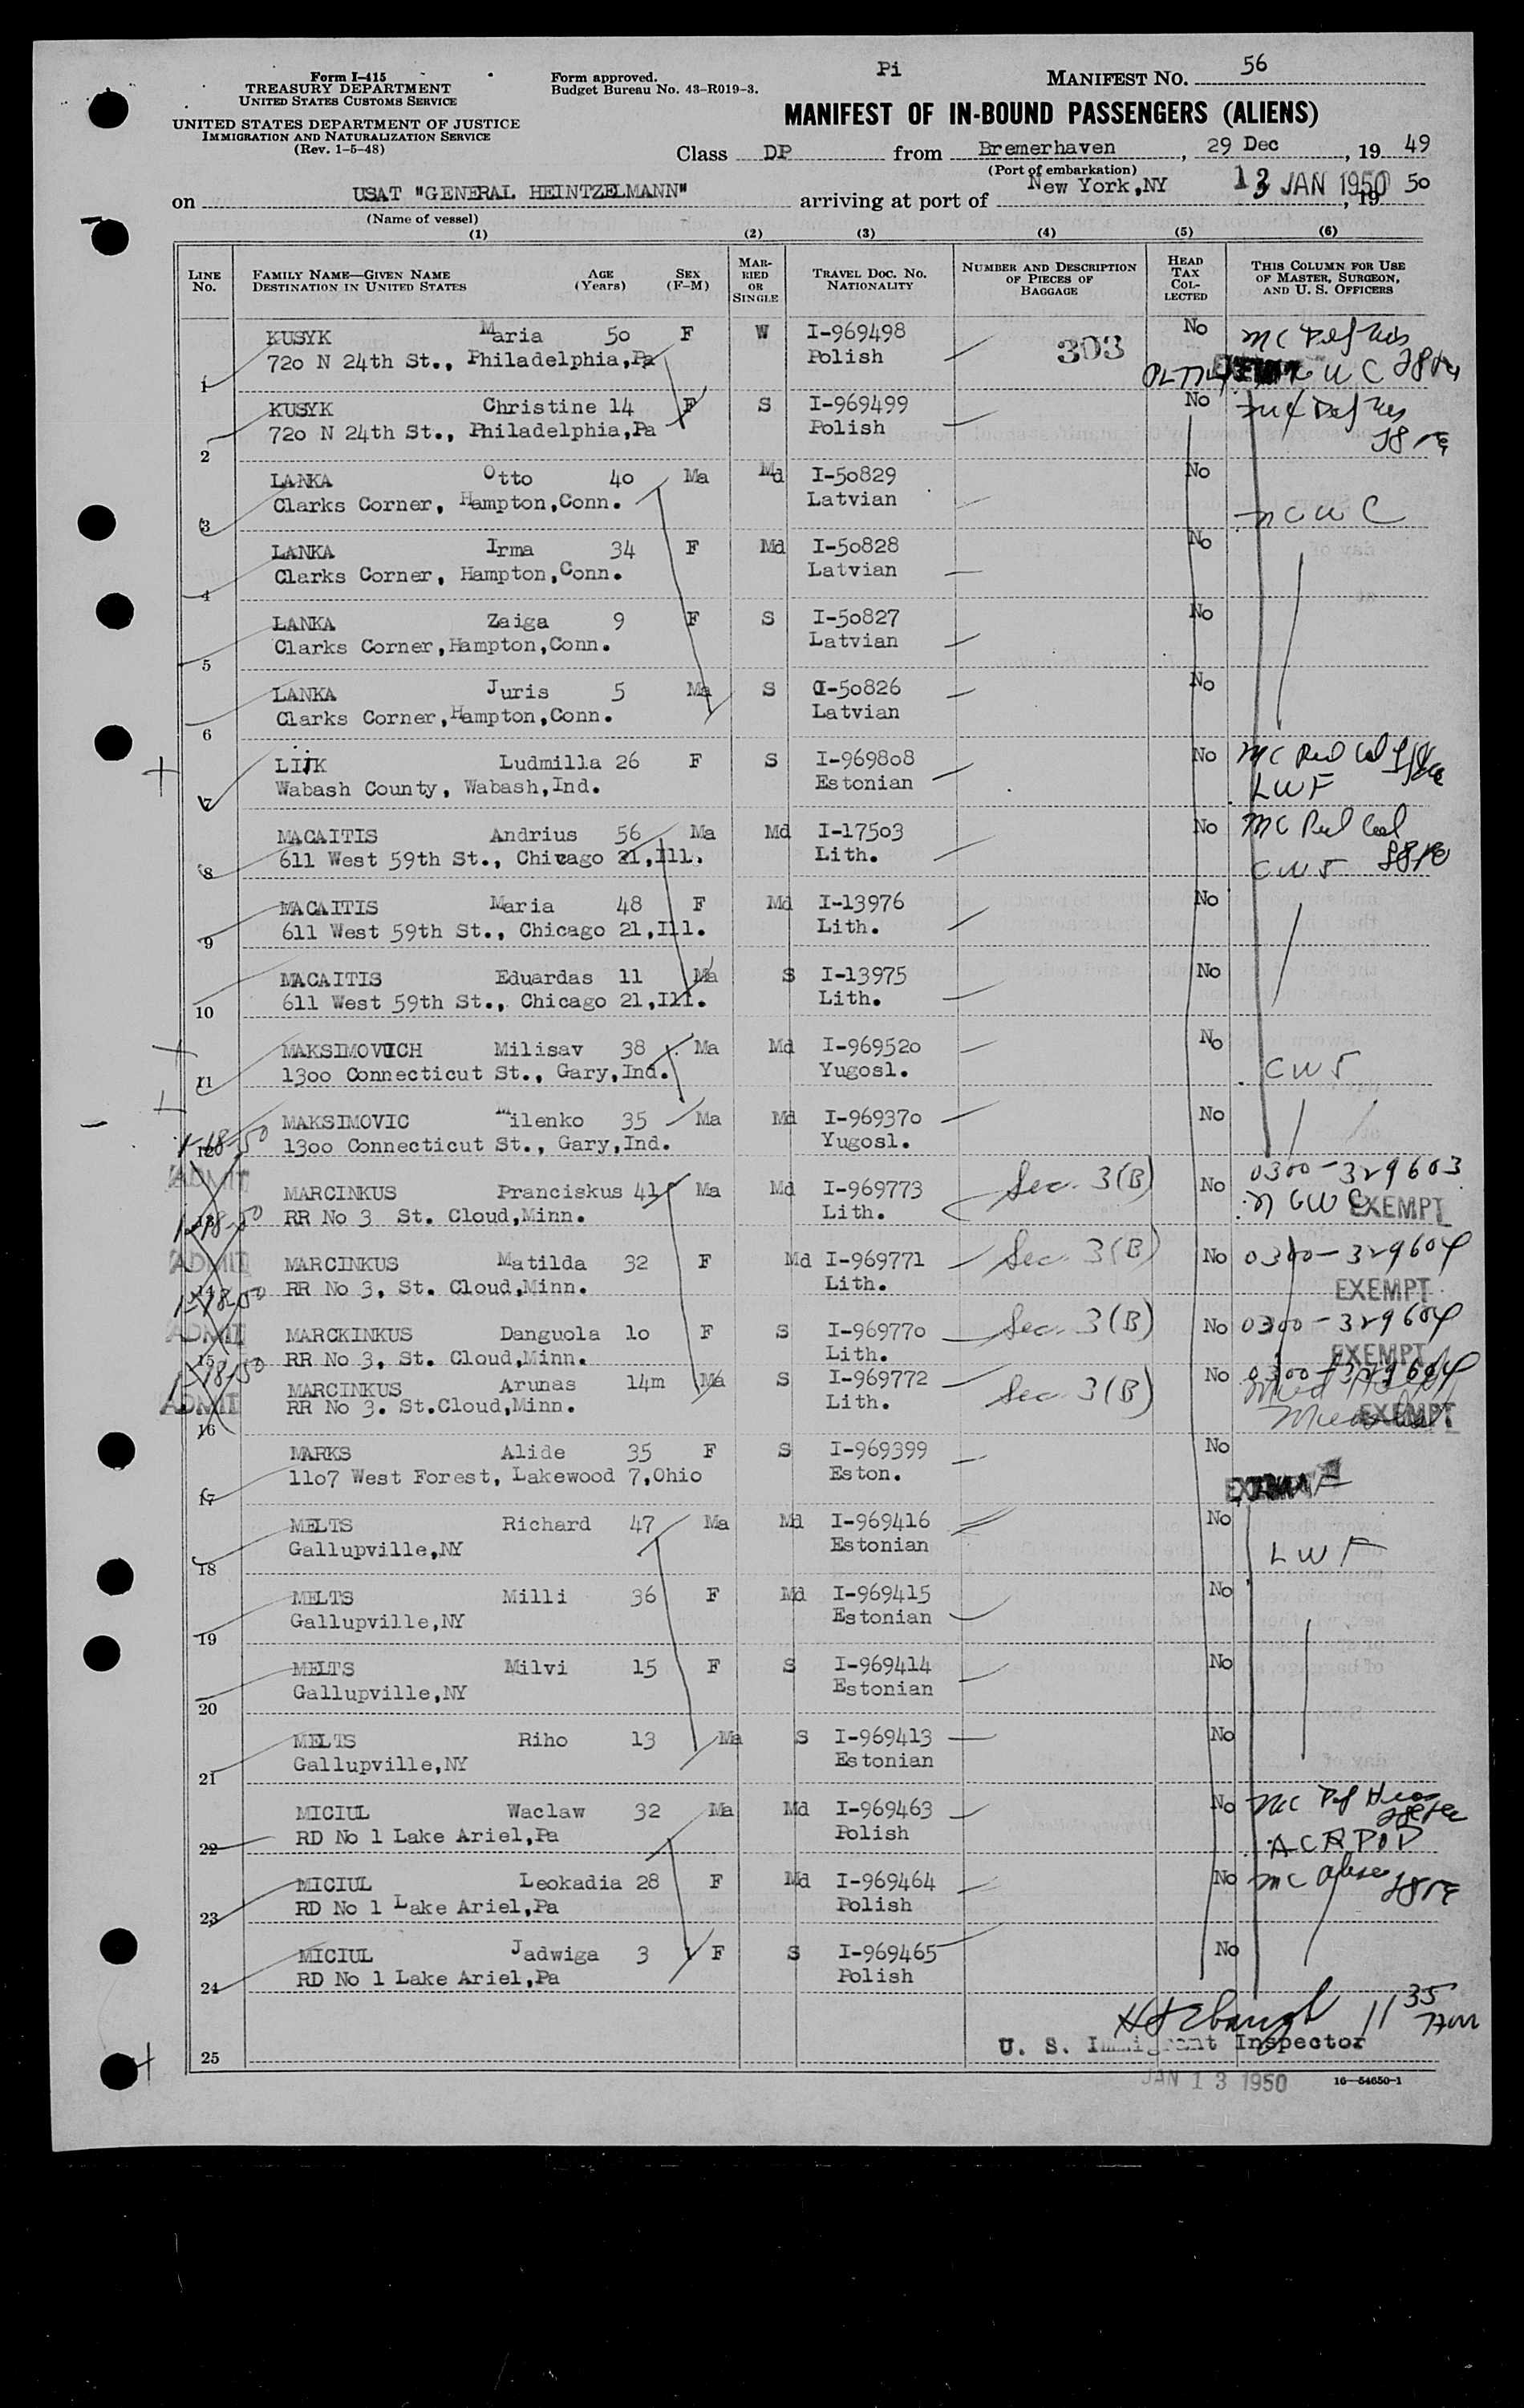 Form I-415
TREASURY DEPARTMENT
UNITED STATES CUSTOMS SERVICE
UNITED STATES DEPARTMENT OF JUSTICE
IMMIGRATION AND NATURALIZATION SERVICE
(Rev. 1-5-48)
Form approved.
Budget Bureau No. 43-R019-3.
Pi
MANIFEST NO. 56
MANIFEST OF IN-BOUND PASSENGERS (ALIENS)
Class DP from Bremerhaven, 29 Dec, 19 49
(Port of embarkation)
on USAT "GENERAL HEINTZELMANN" arriving at port of New York,NY 13 JAN 1950, 19 50
(Name of vessel)
(1) (2) (3) (4) (5) (6)
LINE No. FAMILY NAME—GIVEN NAME DESTINATION IN UNITED STATES AGE (Years) SEX (F-M) MARRIED OR SINGLE TRAVEL DOC. NO. NATIONALITY NUMBER AND DESCRIPTION OF PIECES OF BAGGAGE HEAD TAX COLLECTED THIS COLUMN FOR USE OF MASTER, SURGEON, AND U. S. OFFICERS
KUSYK Maria 50 F W I-969498 303 No
1 720 N 24th St., Philadelphia,Pa Polish
KUSYK Christine 14 F S I-969499 No
2 720 N 24th St., Philadelphia,Pa Polish
LANKA Otto 40 Ma Md I-50829 No
3 Clarks Corner, Hampton,Conn. Latvian NCWC
LANKA Irma 34 F Md I-50828 No
4 Clarks Corner, Hampton,Conn. Latvian
LANKA Zaiga 9 F S I-50827 No
5 Clarks Corner,Hampton,Conn. Latvian
LANKA Juris 5 Ma S I-50826 No
6 Clarks Corner,Hampton,Conn. Latvian
LIIK Ludmilla 26 F S I-969808 No
7 Wabash County, Wabash,Ind. Estonian LWF
MACAITIS Andrius 56 Ma Md I-17503 No
8 611 West 59th St., Chicago 21,Ill. Lith. CWS
MACAITIS Maria 48 F Md I-13976 No
9 611 West 59th St., Chicago 21,Ill. Lith.
MACAITIS Eduardas 11 Ma S I-13975 No
10 611 West 59th St., Chicago 21,Ill. Lith.
MAKSIMOVICH Milisav 38 Ma Md I-969520 No
11 1300 Connecticut St., Gary,Ind. Yugosl. CWS
MAKSIMOVIC Milenko 35 Ma Md I-969370 No
12 1300 Connecticut St., Gary,Ind. Yugosl.
1-18-50
ADMIT
MARCINKUS Pranciskus 41 Ma Md I-969773 Sec. 3(B) No 0300-329603
13 RR No 3 St. Cloud,Minn. Lith. NCWC EXEMPT
1-18-50
ADMIT
MARCINKUS Matilda 32 F Md I-969771 Sec. 3(B) No 0300-329604
14 RR No 3, St. Cloud,Minn. Lith. EXEMPT
1-18-50
ADMIT
MARCKINKUS Danguola 10 F S I-969770 Sec. 3(B) No 0300-329604
15 RR No 3, St. Cloud,Minn. Lith. EXEMPT
1-18-50
ADMIT
MARCINKUS Arunas 14m Ma S I-969772 Sec. 3(B) No 0300-329604
16 RR No 3. St.Cloud,Minn. Lith. EXEMPT
MARKS Alide 35 F S I-969399 No
17 1107 West Forest, Lakewood 7,Ohio Eston.
MELTS Richard 47 Ma Md I-969416 No
18 Gallupville,NY Estonian LWF
MELTS Milli 36 F Md I-969415 No
19 Gallupville,NY Estonian
MELTS Milvi 15 F S I-969414 No
20 Gallupville,NY Estonian
MELTS Riho 13 Ma S I-969413 No
21 Gallupville,NY Estonian
MICIUL Waclaw 32 Ma Md I-969463 No
22 RD No 1 Lake Ariel,Pa Polish
MICIUL Leokadia 28 F Md I-969464 No
23 RD No 1 Lake Ariel,Pa Polish
MICIUL Jadwiga 3 F S I-969465 No
24 RD No 1 Lake Ariel,Pa Polish
11 35
25 U. S. Immigrant Inspector
JAN 13 1950 16—54650-1